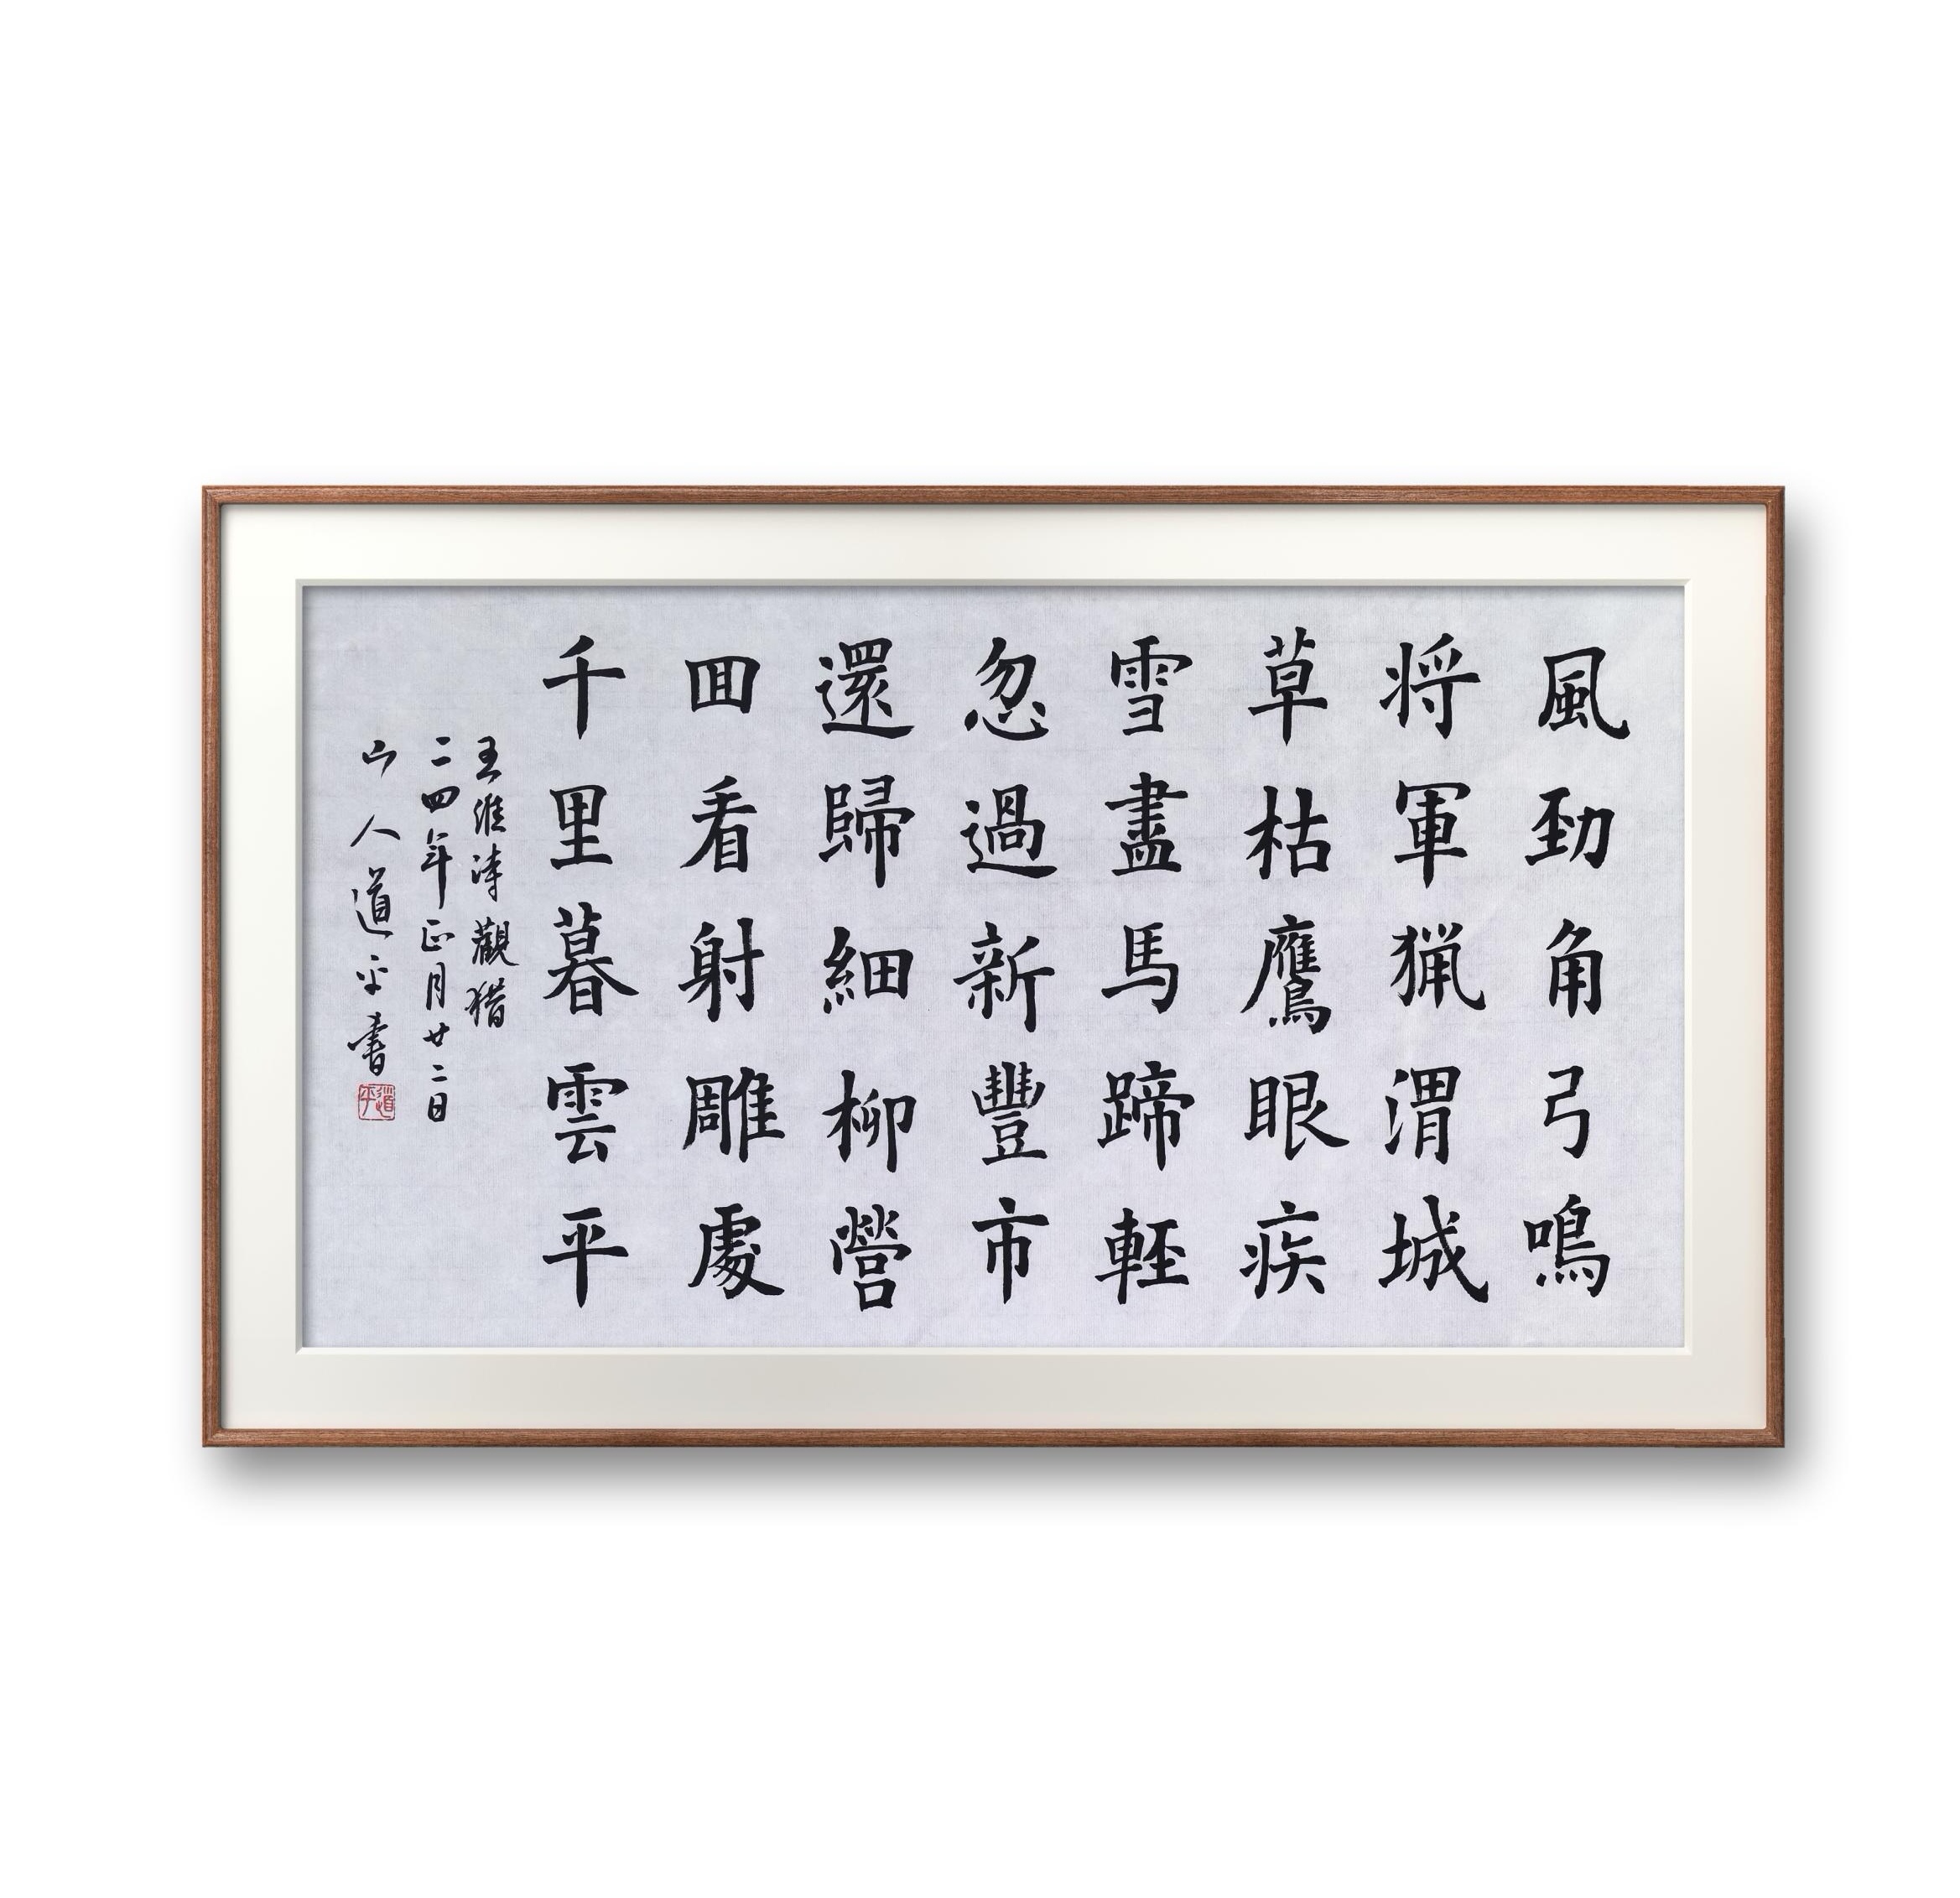 風勁角弓鳴
将軍猟渭城
草枯鷹眼疾
雪盡馬蹄軽
忽過新豐市
還歸細柳營
回看射雕處
千里暮雲平
王維诗觀猎
二四年正月廿二日
山人道平書
道平